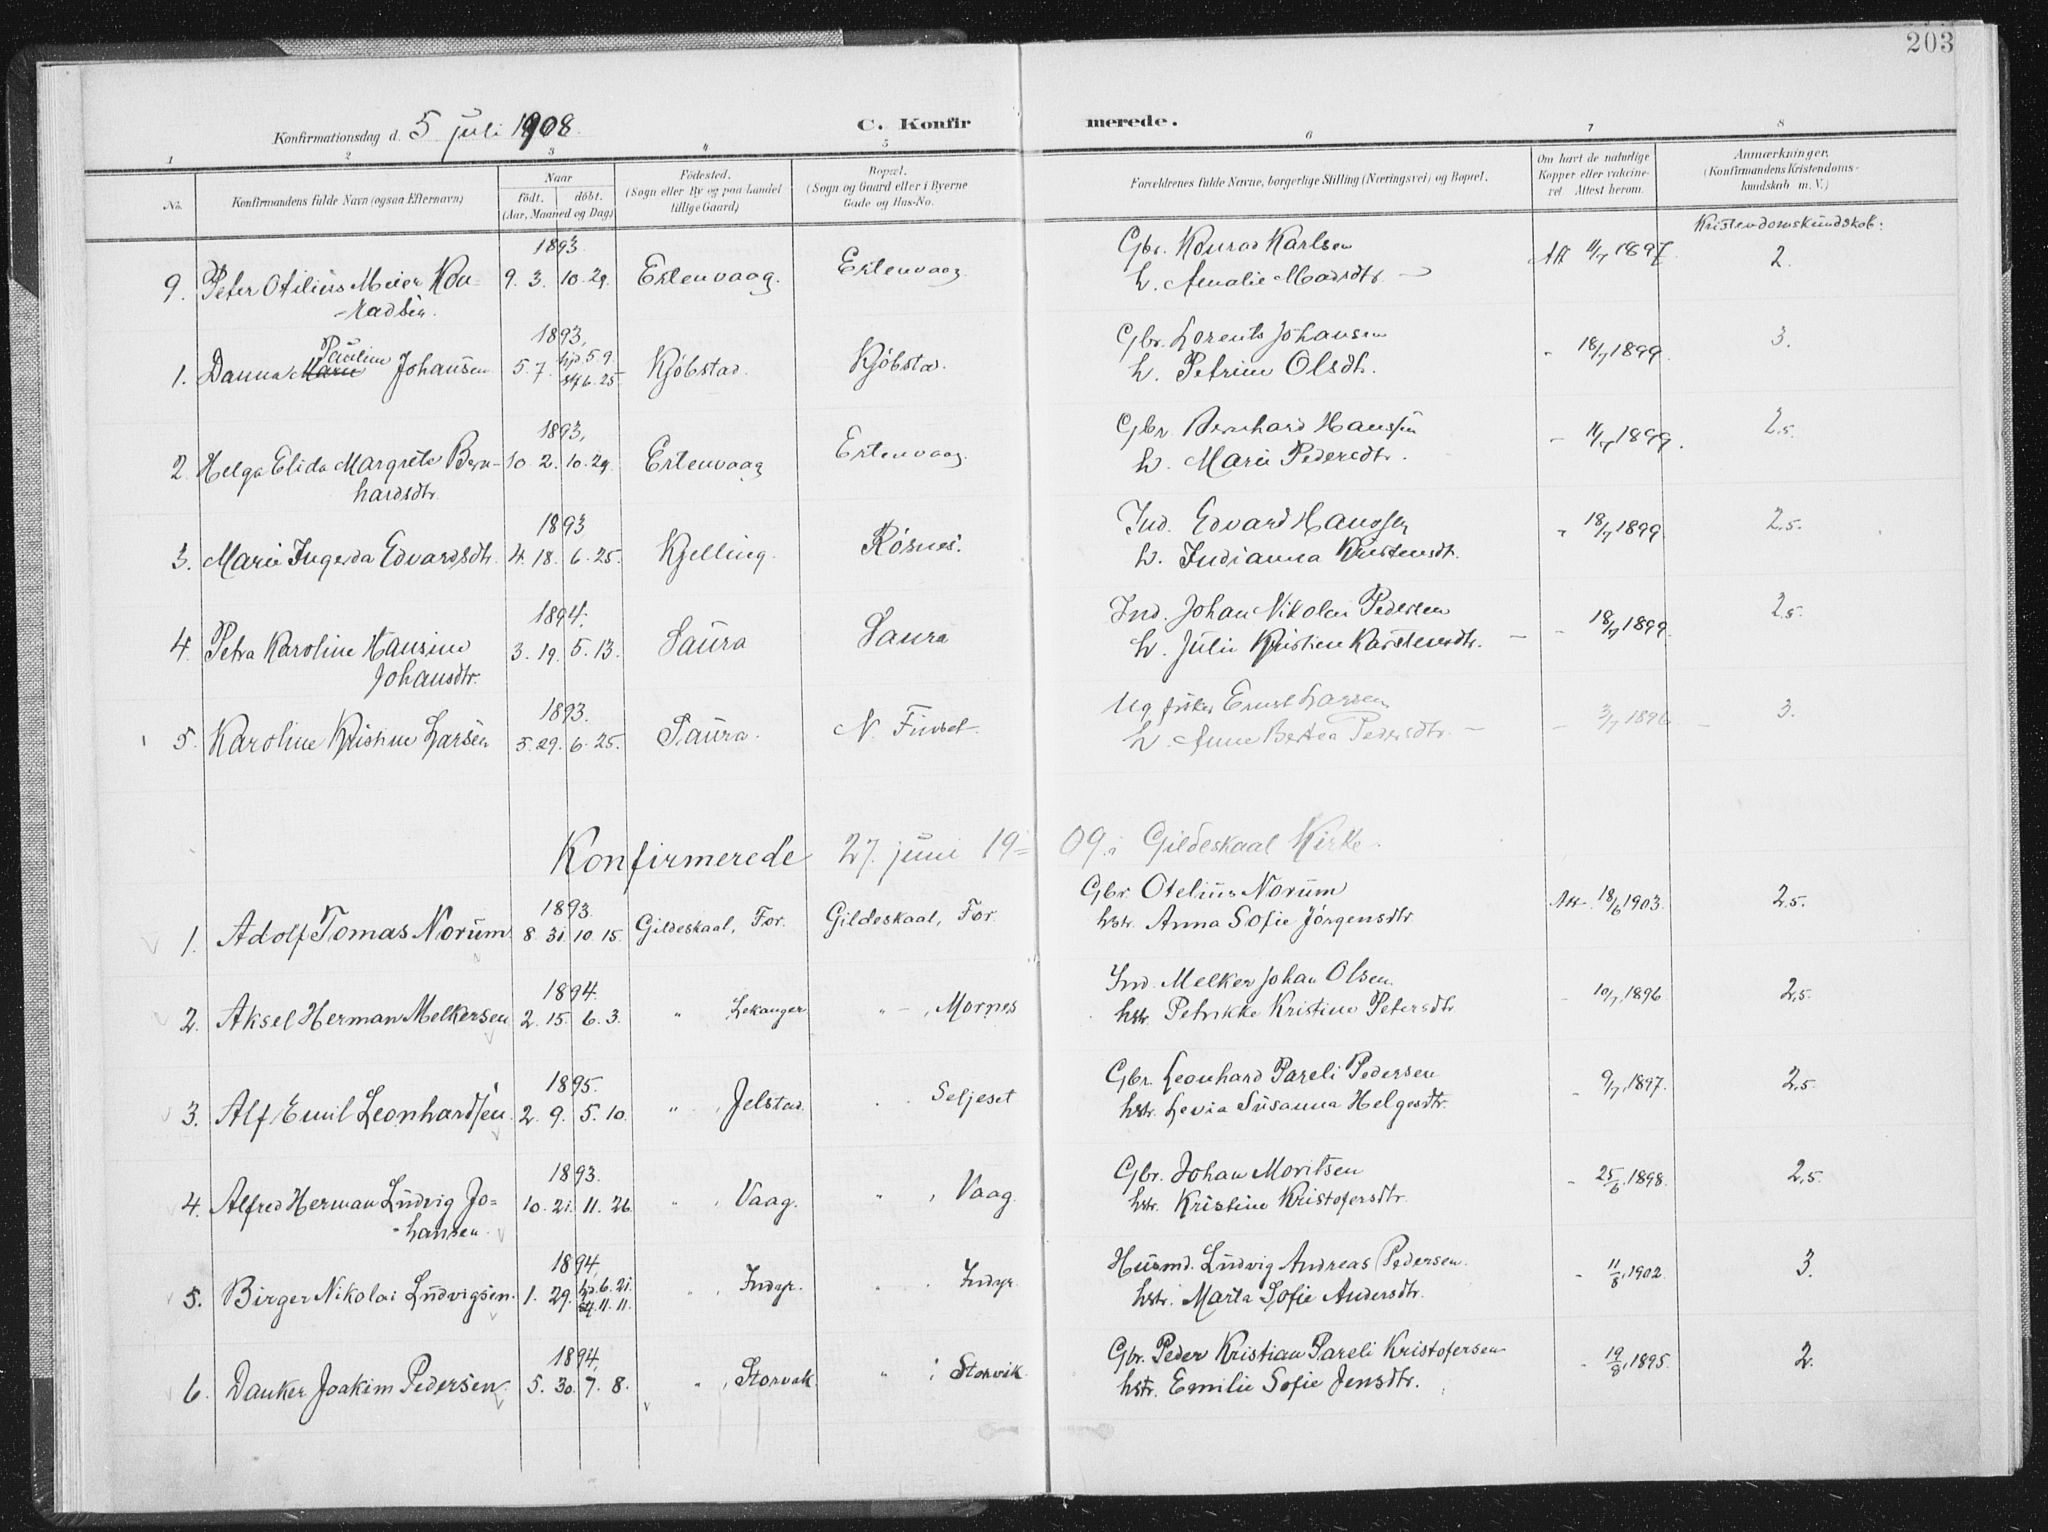 203
Konfirmationsdag d. 5 juli 1908.
C. Konfirmerede.
1 2 3 4 5 6 7 8
No.
Konfirmandens fulde Navn (ogsaa Efternavn)
Naar
födt. döbt.
(Aar, Maaned og Dag)
Födested.
(Sogn eller By og paa Landet
tillige Gaard)
Bopæl.
(Sogn og Gaard eller i Byerne
Gade og Hus-No.
Forældrenes fulde Navne, borgerlige Stilling (Næringsvei) og Bopæl.
Om havt de naturlige
Kopper eller vakcine-
ret. Attest herom.
Anmærkninger.
(Konfirmandens Kristendoms-
kundskab m. V.)
Kristendomskundskab:
1893.
9. Peter Otilius Meier Kon- 9. 3. 10. 29. Estenvaag. Estenvaag. Gbr. Konrad Karlsen Att 11/7 1897. 2.
-radsen. h. Amalie Madsdtr. —
1893,
1. Danna Marie Pauline Johansen 5. 7. hjd. 5. 9. 6. 25. Kjöbstad. Kjöbstad. Gbr. Lorents Johansen " 18/7 1899. 3.
h. Petrine Olsdtr.
1893,
2. Helga Elida Margrete Bern- 10. 2. 10. 29. Estenvaag Estenvaag. Gbr. Bernhard Hanssen " 11/7 1899. 2.5.
hardsdtr. h. Marie Pedersdtr.
1893
3. Marie Ingerda Edvardsdtr. 4. 18. 6. 25. Kjelling. Rösnes. Ind. Edvard Hanssen " 18/7 1899 2.5.
h. Indianna Kristensdtr.
1894.
4. Petra Karoline Hansine 3. 19. 5. 13. Saura Saura Ind. Johan Nikolai Pedersen " 18/7 1899. 2.5.
Johansdtr. h. Julie Kristien Karstensdtr. —
1893.
5. Karoline Kristine Larsen 5. 29. 6. 25. Saura. N. Finset Ug. fisker Ernst Larsen — 3/7 1896 — 3.
h. Anne Bertea Pedersdtr. —
Konfirmerede 27. juni 19=09. i Gildeskaal Kirke.
1893.
1. Adolf Tomas Norum 8. 31. 10. 15. Gildeskaal, For. Gildeskaal, For. Gbr. Otelius Norum Att. 18/6 1903. 2.5.
hstr. Anna Sofie Jörgensdtr
1894.
2. Aksel Herman Melkersen 2. 15. 6. 3. " Lekanger " — , Mornes Ind. Melker Johan Olsen. " 10/7 1896. 2,5.
hstr. Petrikke Kristine Petersdtr
1895.
3. Alf Emil Leonhardsen. 2. 9. 5. 10. " , Jelstad. Seljeset Gbr. Leonhard Pareli Pedersen " 9/7 1897. 2,5.
hstr. Levia Susanna Helgesdtr.
1893.
4. Alfred Herman Ludvig Jo= 10. 21. 11. 26. " , Vaag. " , Vaag. Gbr. Johan Moritsen " 25/6 1898. 2,5.
-hansen. hstr. Kristine Kristofersdtr.
1894,
5. Birger Nikolai Ludvigsen. 1. 29. hjd. 6. 21. 11. 11. " , Indyr. " . Indyr. Husmd. Ludvig Andreas Pedersen. " 11/8 1902. 3.
hstr. Marta Sofie Andersdtr.
1894,
6. Danker Joakim Pedersen. 5. 30. 7. 8. " , Storvik. " , Storvik. Gbr. Peder Kristian Pareli Kristofersen " 19/8 1895. 2.
hstr. Emilie Sofie Jensdtr.